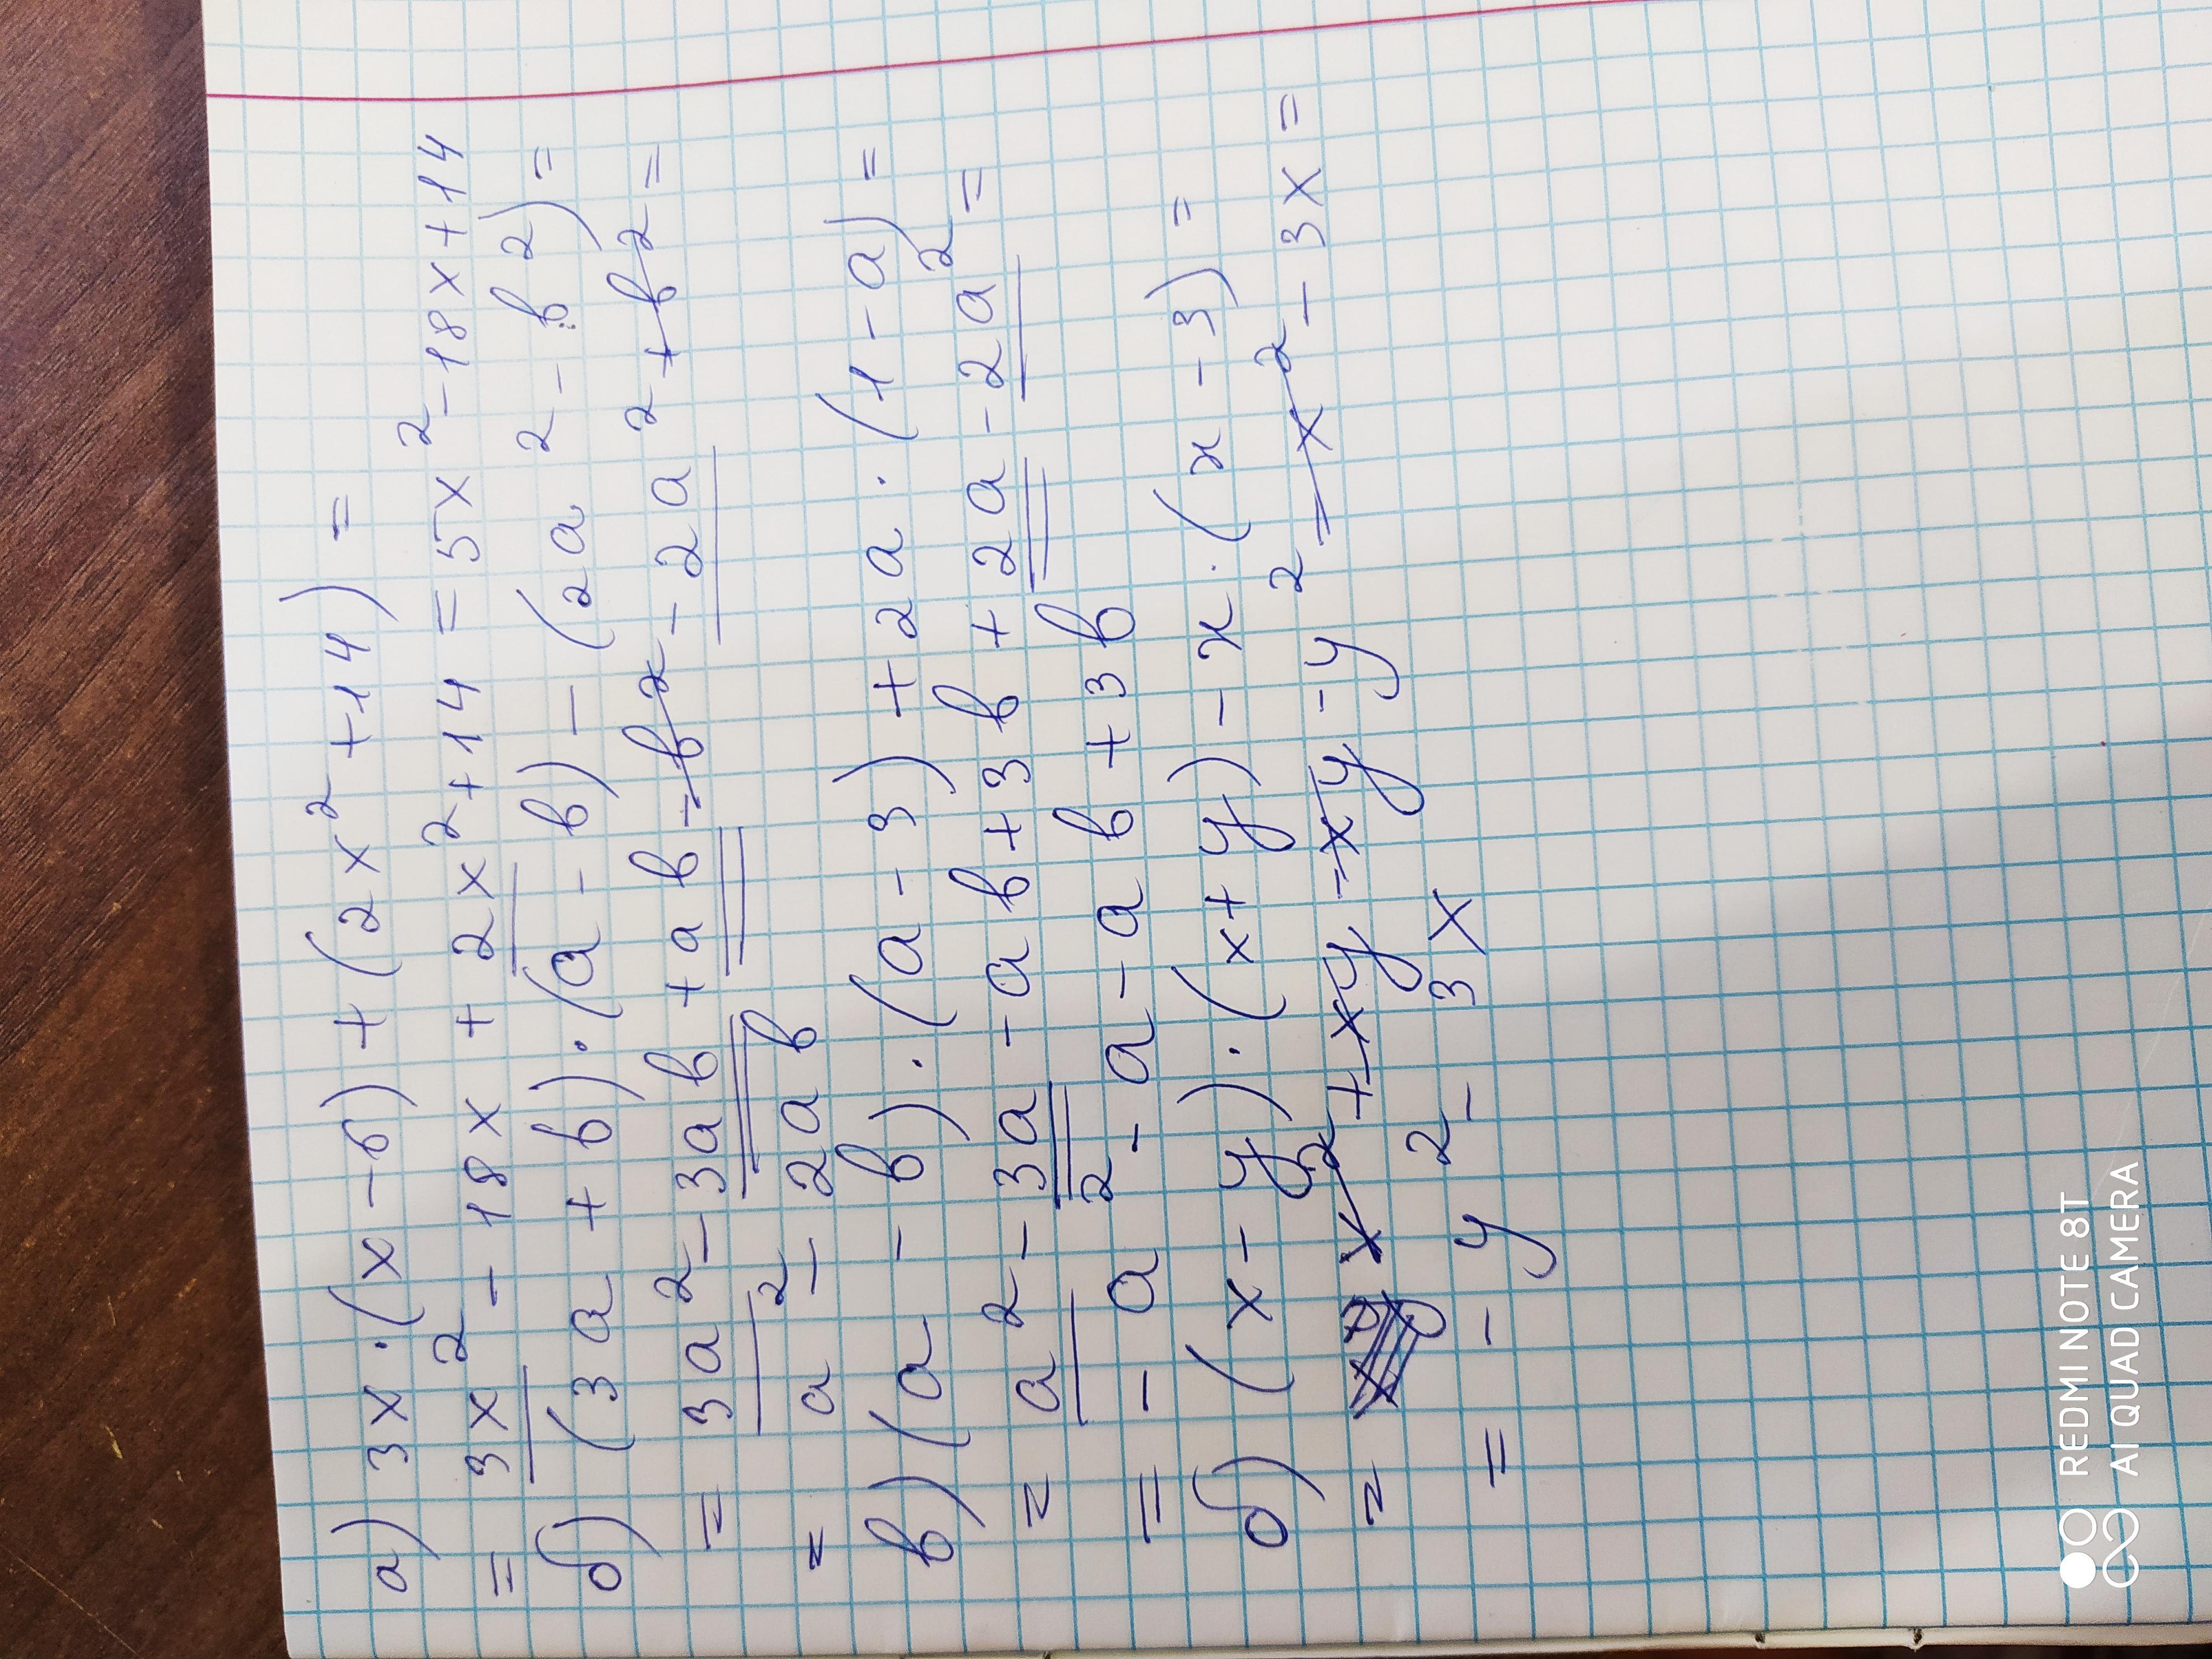 а) 3x·(x-6)+(2x²+14)=
= 3x²-18x+2x²+14=5x²-18x+14
б) (3a+b)·(a-b)-(2a²-b²)=
= 3a²-3ab+ab-b²-2a²+b²=
= a²-2ab
в) (a-b)·(a-3)+2a·(1-a)=
= a²-3a-ab+3b+2a-2a²=
= -a²-a-ab+3b
б) (x-y)·(x+y)-x·(x-3)=
= x²+xy-xy-y²-x²-3x=
= -y²-3x
REDMI NOTE 8T
AI QUAD CAMERA